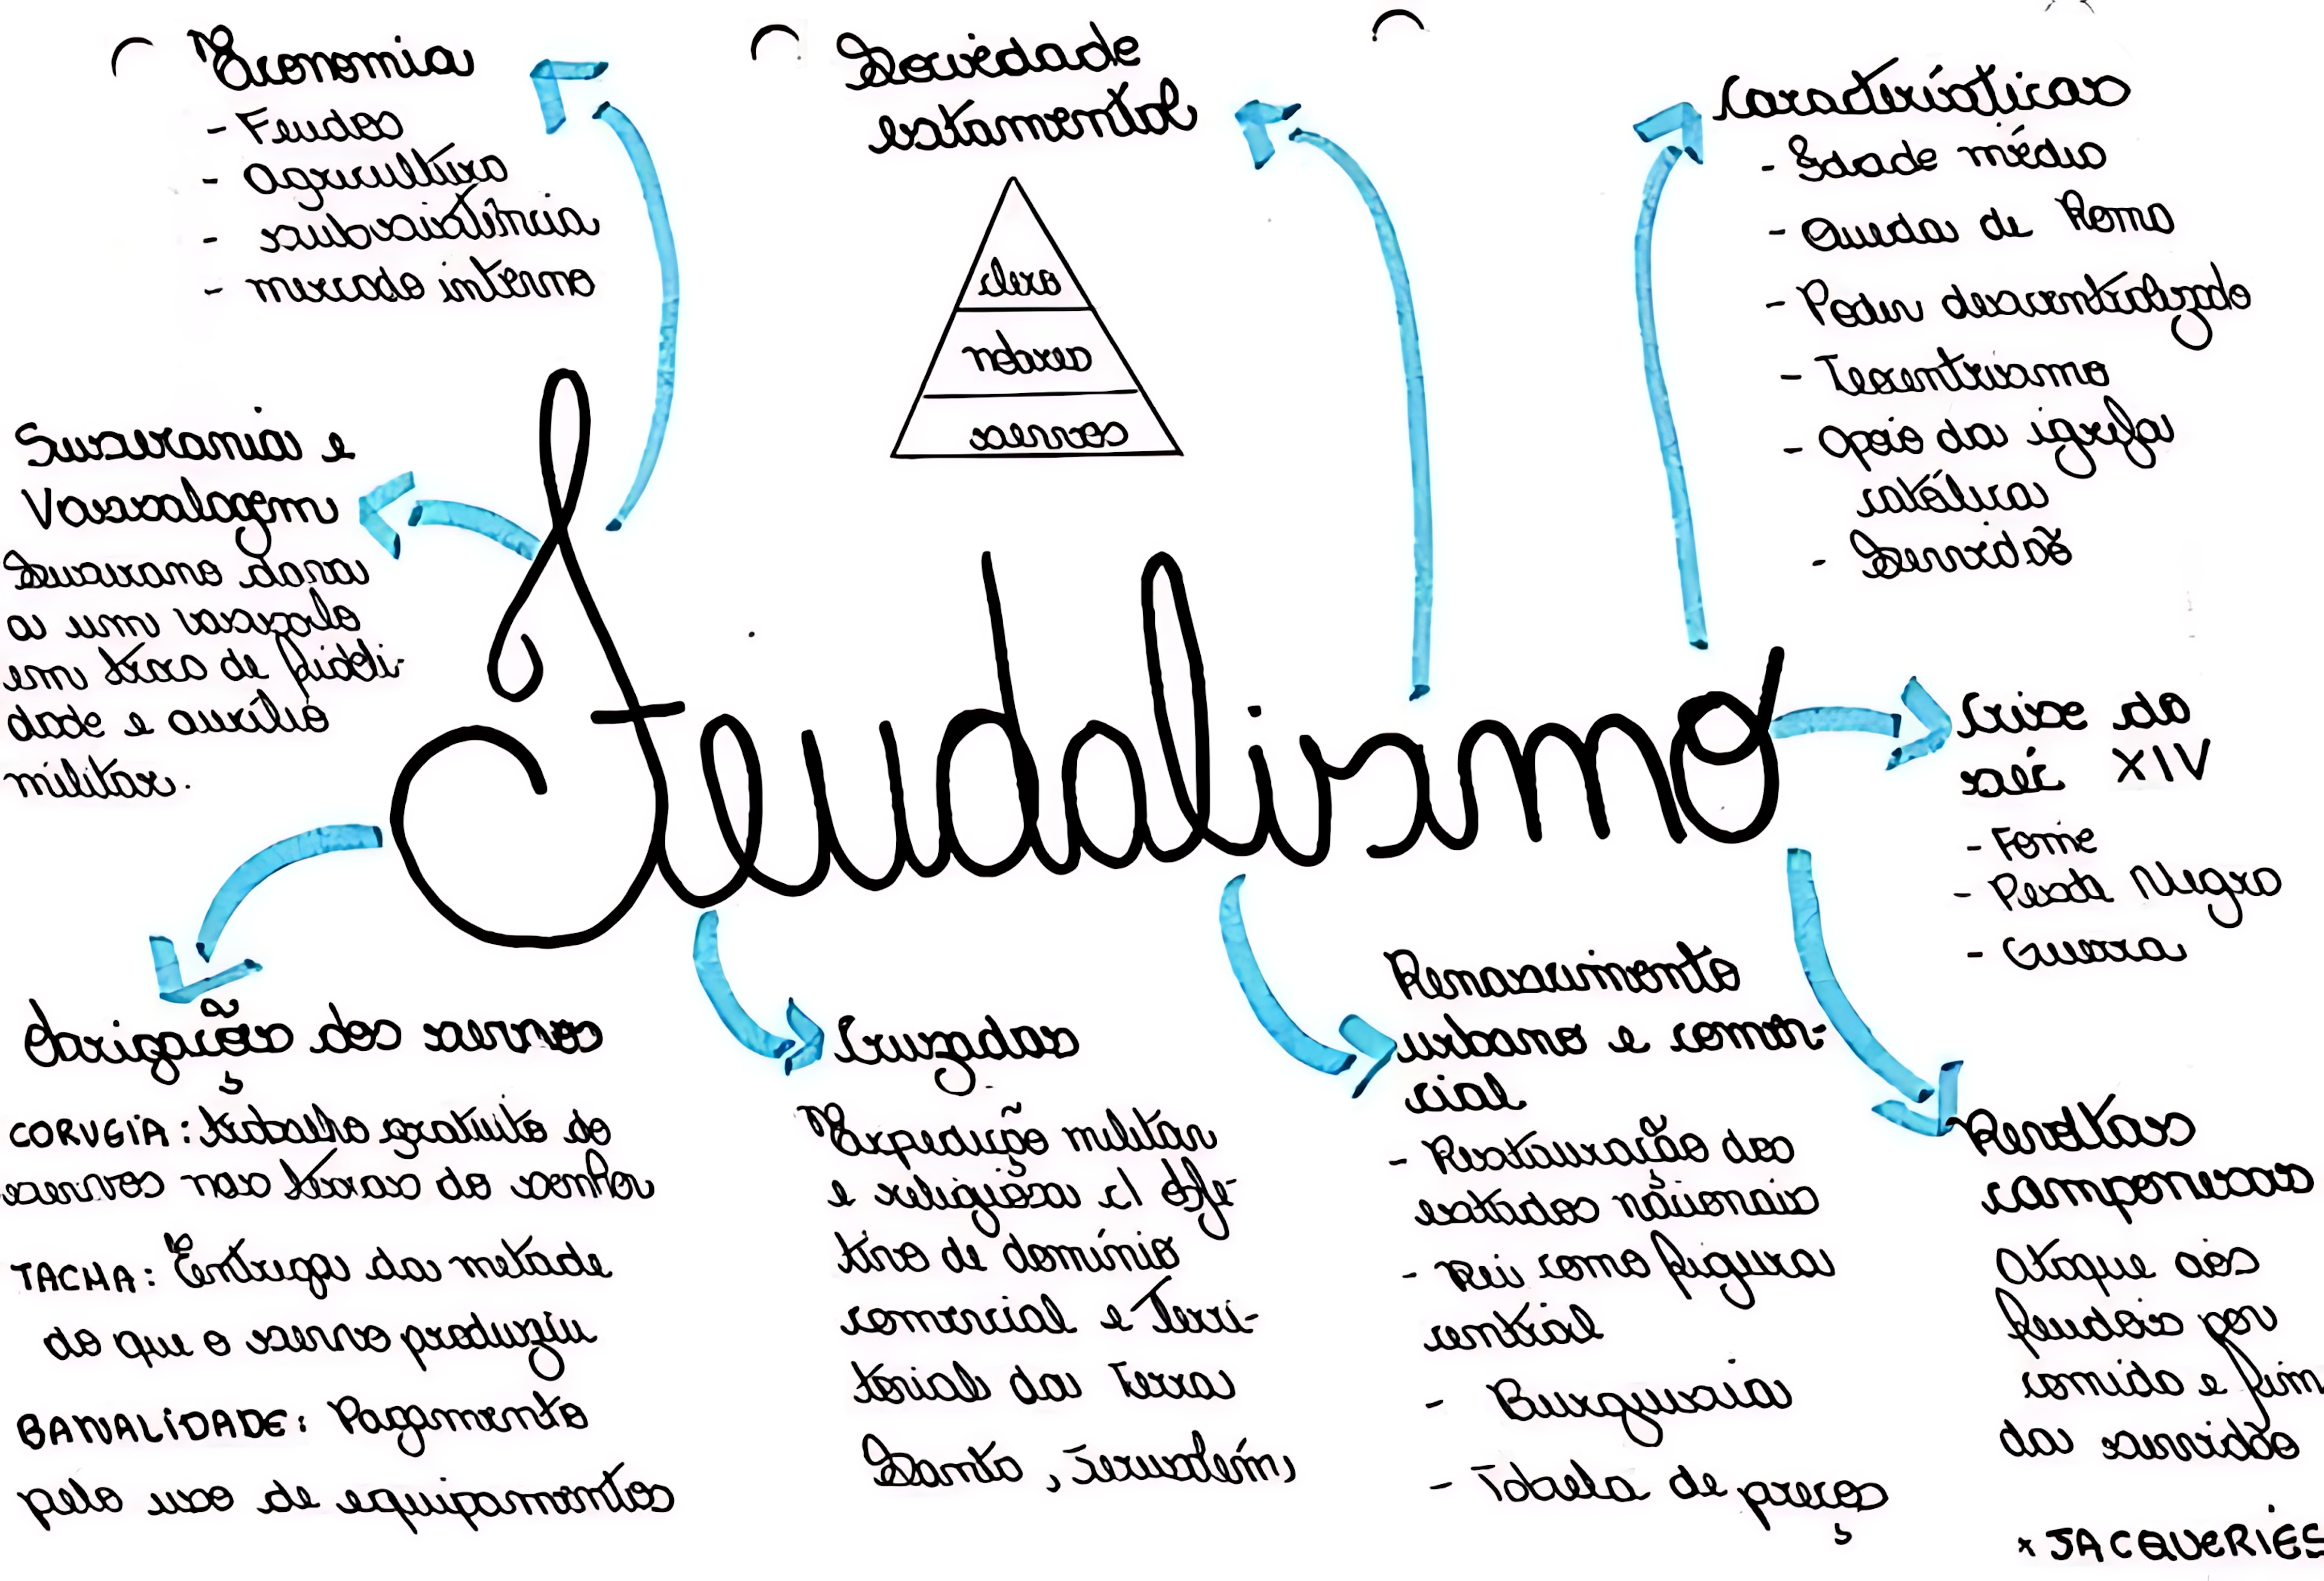 Economia
- Feudos
- Agricultura
- subsistência
- mercado interno
Sociedade
estamental
clero
nobres
servos
Características
- Idade média
- Queda de Roma
- Poder descentralizado
- Teocentrismo
- Apoio da igreja
católica
- Servidão
Suserania e
Vassalagem
Suserano dava
a um vassalo
em troca de fideli-
dade e auxílio
militar.
Feudalismo
Crise do
séc XIV
- Fome
- Peste Negra
- Guerra
Obrigações dos servos
CORVEIA: trabalho gratuito do
servos nas terras do senhor
TACHA: Entrega da metade
do que o servo produziu
BANALIDADE: Pagamento
pelo uso de equipamentos
Cruzadas
Expedição militar
e religiosa c/ obje-
tivo de domínio
comercial e Terri-
torial da Terra
Santa, Jerusalém,
Renascimento
urbano e comer-
cial
- Restauração dos
estados nacionais
- Rei como figura
central
- Burguesia
- Tabela de preços
Revoltas
camponesas
Ataque aos
feudais por
comida e fim
da servidão
* JACQUERIES